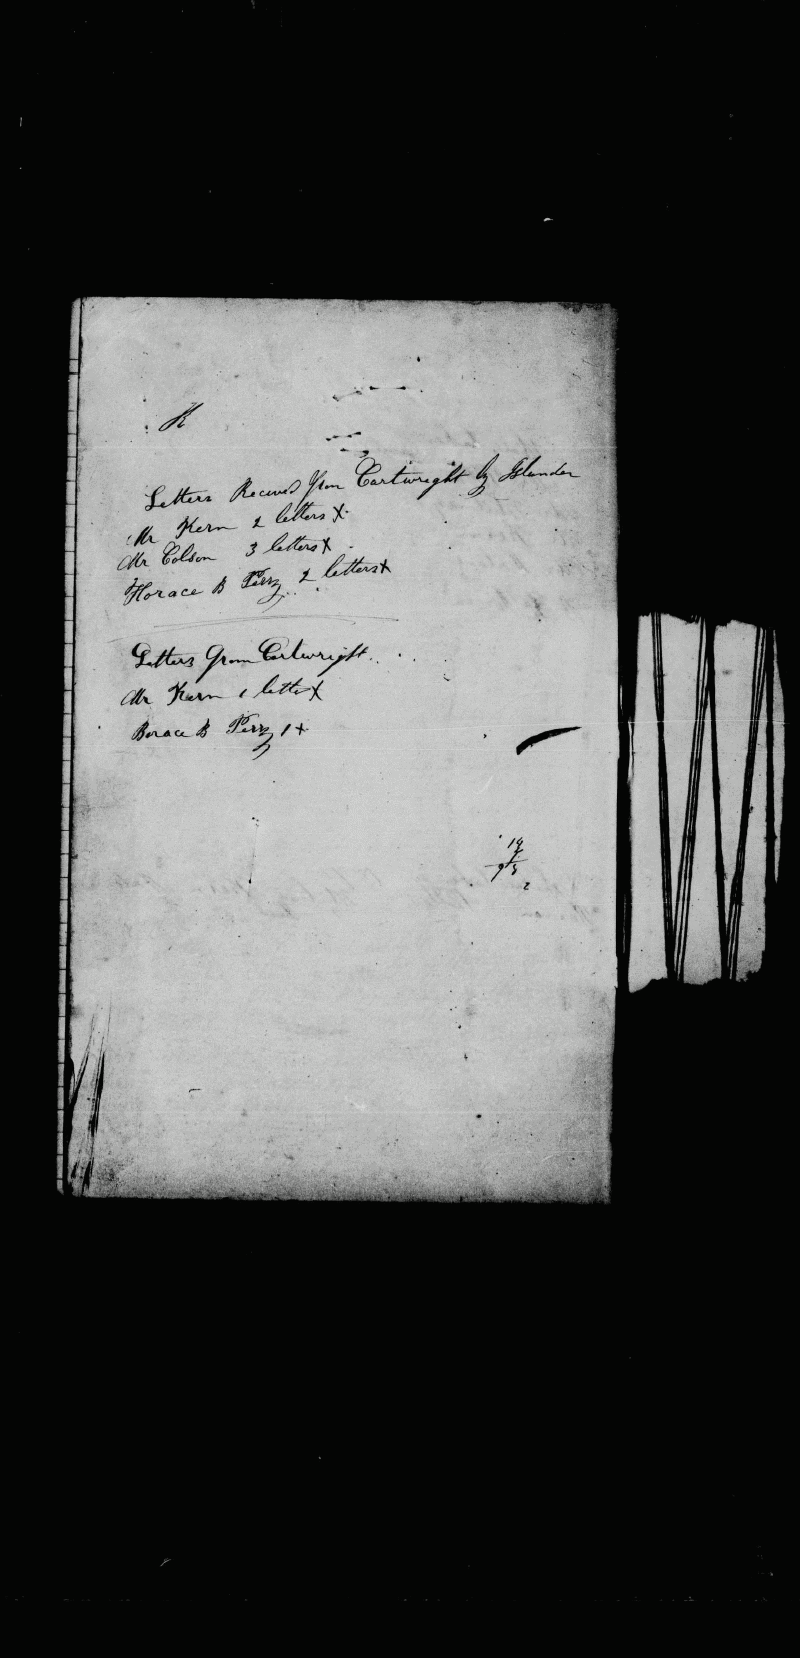 K
Letters Received from Cartwright by Islander
Mr Kern 2 letters X
Mr Colson 3 letters X
Horace B Perry 2 letters X
Letters from Cartwright
Mr Kern 1 letter X
Horace B Perry 1 X